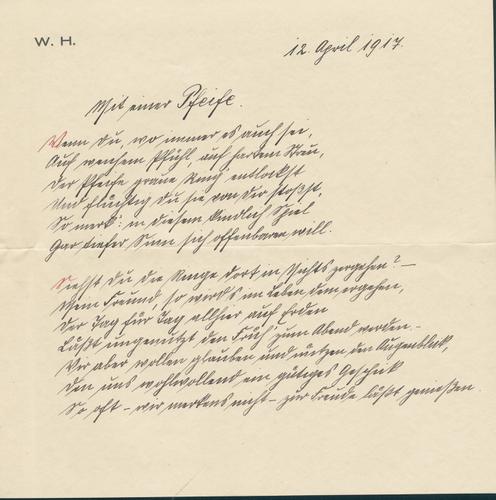 W. H.
12. April 1917.
Mit einer Pfeife.
Wenn du, wo immer es auch sei,
Auf weichem Pfühl, auf hartem Streu,
Der Pfeife graue Ring entlockst
Und flüchtig du sie von dir stoßst,
So merk: in diesem kindlich Spiel
Gar tiefer Sinn sich offenbaren will.
Siehst du die Ringe dort in Nichts zergehen? –
Mein Freund, so wird's im Leben dem ergehen,
Der Tag für Tag allhier auf Erden
Läßt ungenutzt den Früh' zum Abend werden. –
Wir aber wollen glauben und nützen den Augenblick,
Den uns wohlwollend ein gütiges Geschick
So oft – wir merkens nicht – zur Freude läßt genießen.